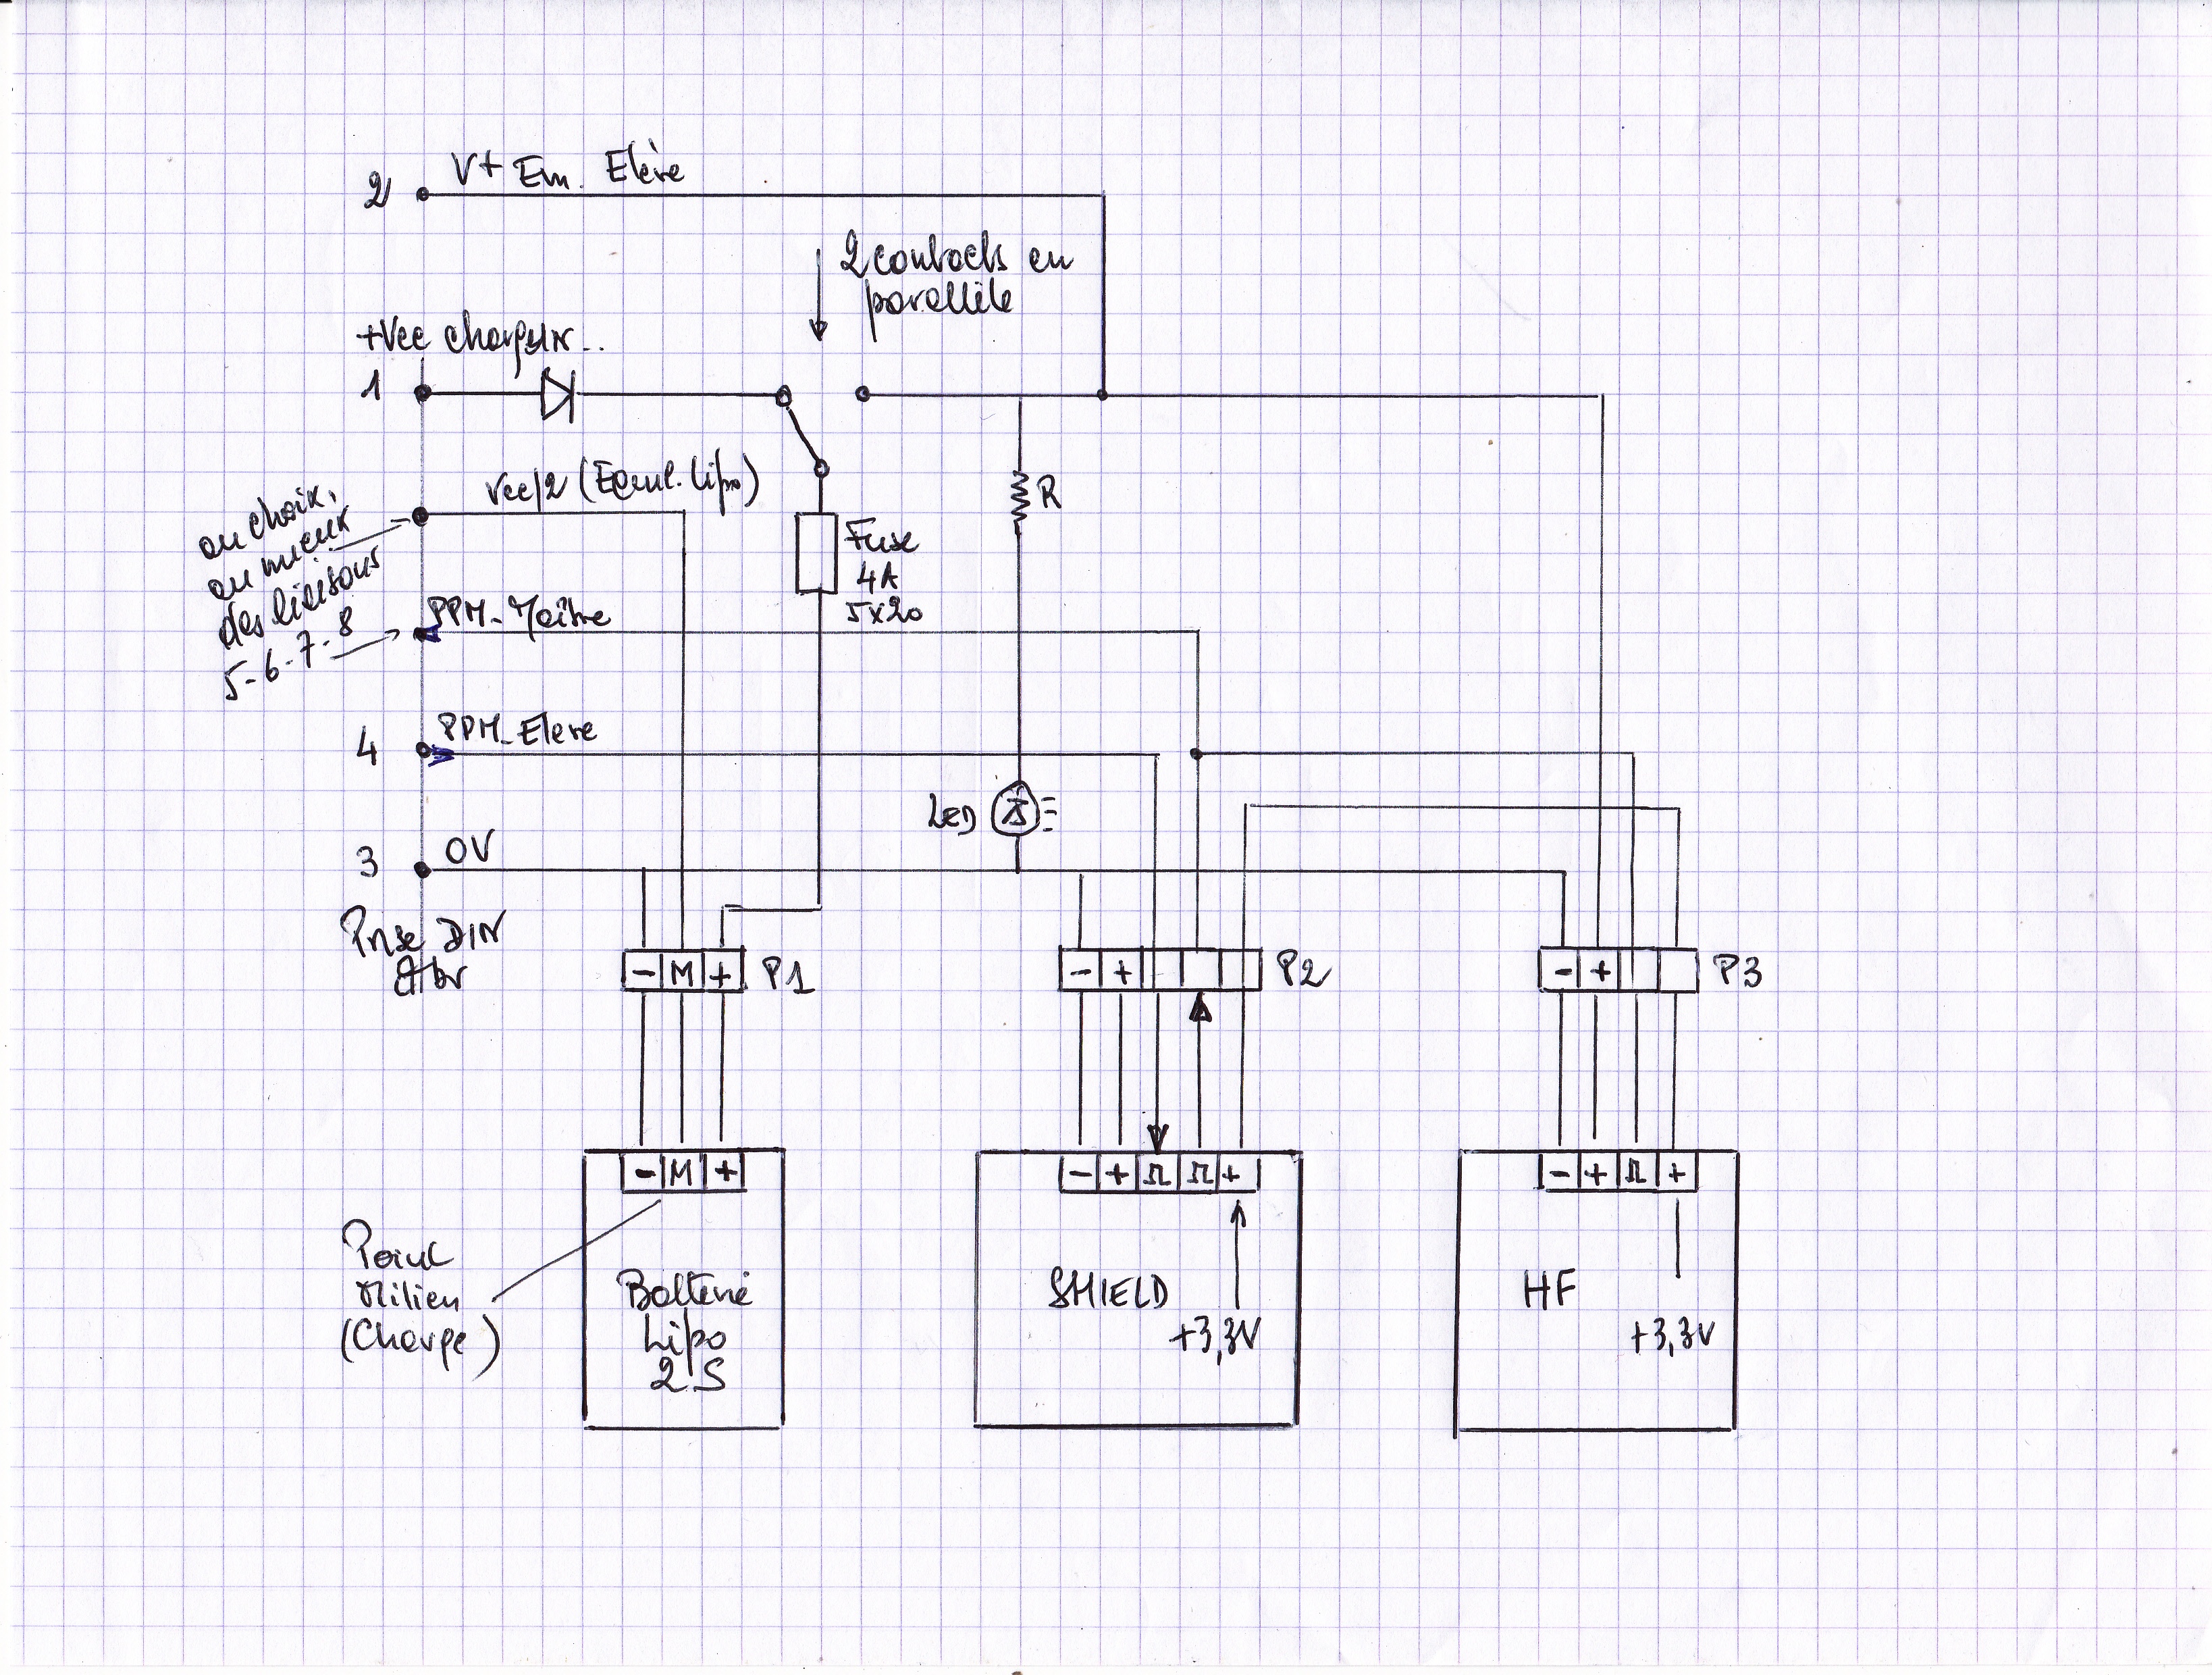 2 V+ Em. Elève
2 contacts en
parallèle
+Vcc chargeur..
1
Vcc/2 (Equil. Lipo)
au choix,
au mieux
des liaisons
5-6-7-8
R
Fuse
4A
5x20
PPM_Maître
4 PPM_Eleve
LED
3 0V
Prise DIN
- M + P1
- + P2
- + P3
- M +
- + Π Π +
- + Π +
Point
Milieu
(Charge)
Batterie
Lipo
2S
SHIELD
+3,3V
HF
+3,3V